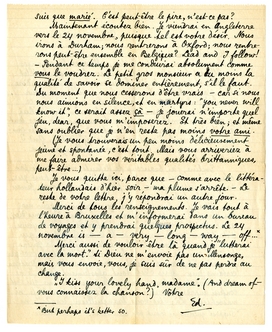 suis que marié. C'est peut être le père, n'est ce pas?
Maintenant écoutez bien. Je viendrai en Angleterre
vers le 24 novembre, puisque tel est votre désir. Nous
irons à Durham, nous rentrerons à Oxford; nous rentre-
rons peut être ensemble en Belgique? Lead and I follow!
Pendant ce temps je me conduirai absolument comme
vous le voudrez. Le petit gros monsieur a au moins la
qualité de savoir se dominer entièrement, s'il le faut.
Du moment que nous cessons d'être vrais — car si nous
nous aimons en silence, et en martyrs: "you never will
know it", ce serait assez — je jouerai n'importe quel
jeu, dear, que vous m'imposerez. Et très bien, et même
sans oublier que je n'en reste pas moins votre ami.
(Je vous trouverais un peu moins délicieusement
jeune et spontanée, c'est tout. Mais vous arriveriez à
me faire admirer vos véritables qualités britanniques,
peut-être...)
Je vous quitte ici, parce que — comme avec le lettera-
teur hollandais d'hier soir — ma plume s'arrête. Le
reste de votre lettre, j'y répondrai un autre jour.
Merci de tous les renseignements. Je vais tout à
l'heure à Bruxelles et m'informerai dans un bureau
de voyages et y prendrai quelques prospectus. Le 24
novembre is — a — very — long — way — off.*
Merci aussi de vouloir être là quand je "lutterai
avec la mort". Si Dieu ne m'envoie pas un mensonge,
mais vous envoie, vous, je suis sûr de ne pas perdre au
change.
"I kiss your lovely hand, madame". (And dream of
vous connaissez la chanson?) Votre
Ed.
* But perhaps it's better so.